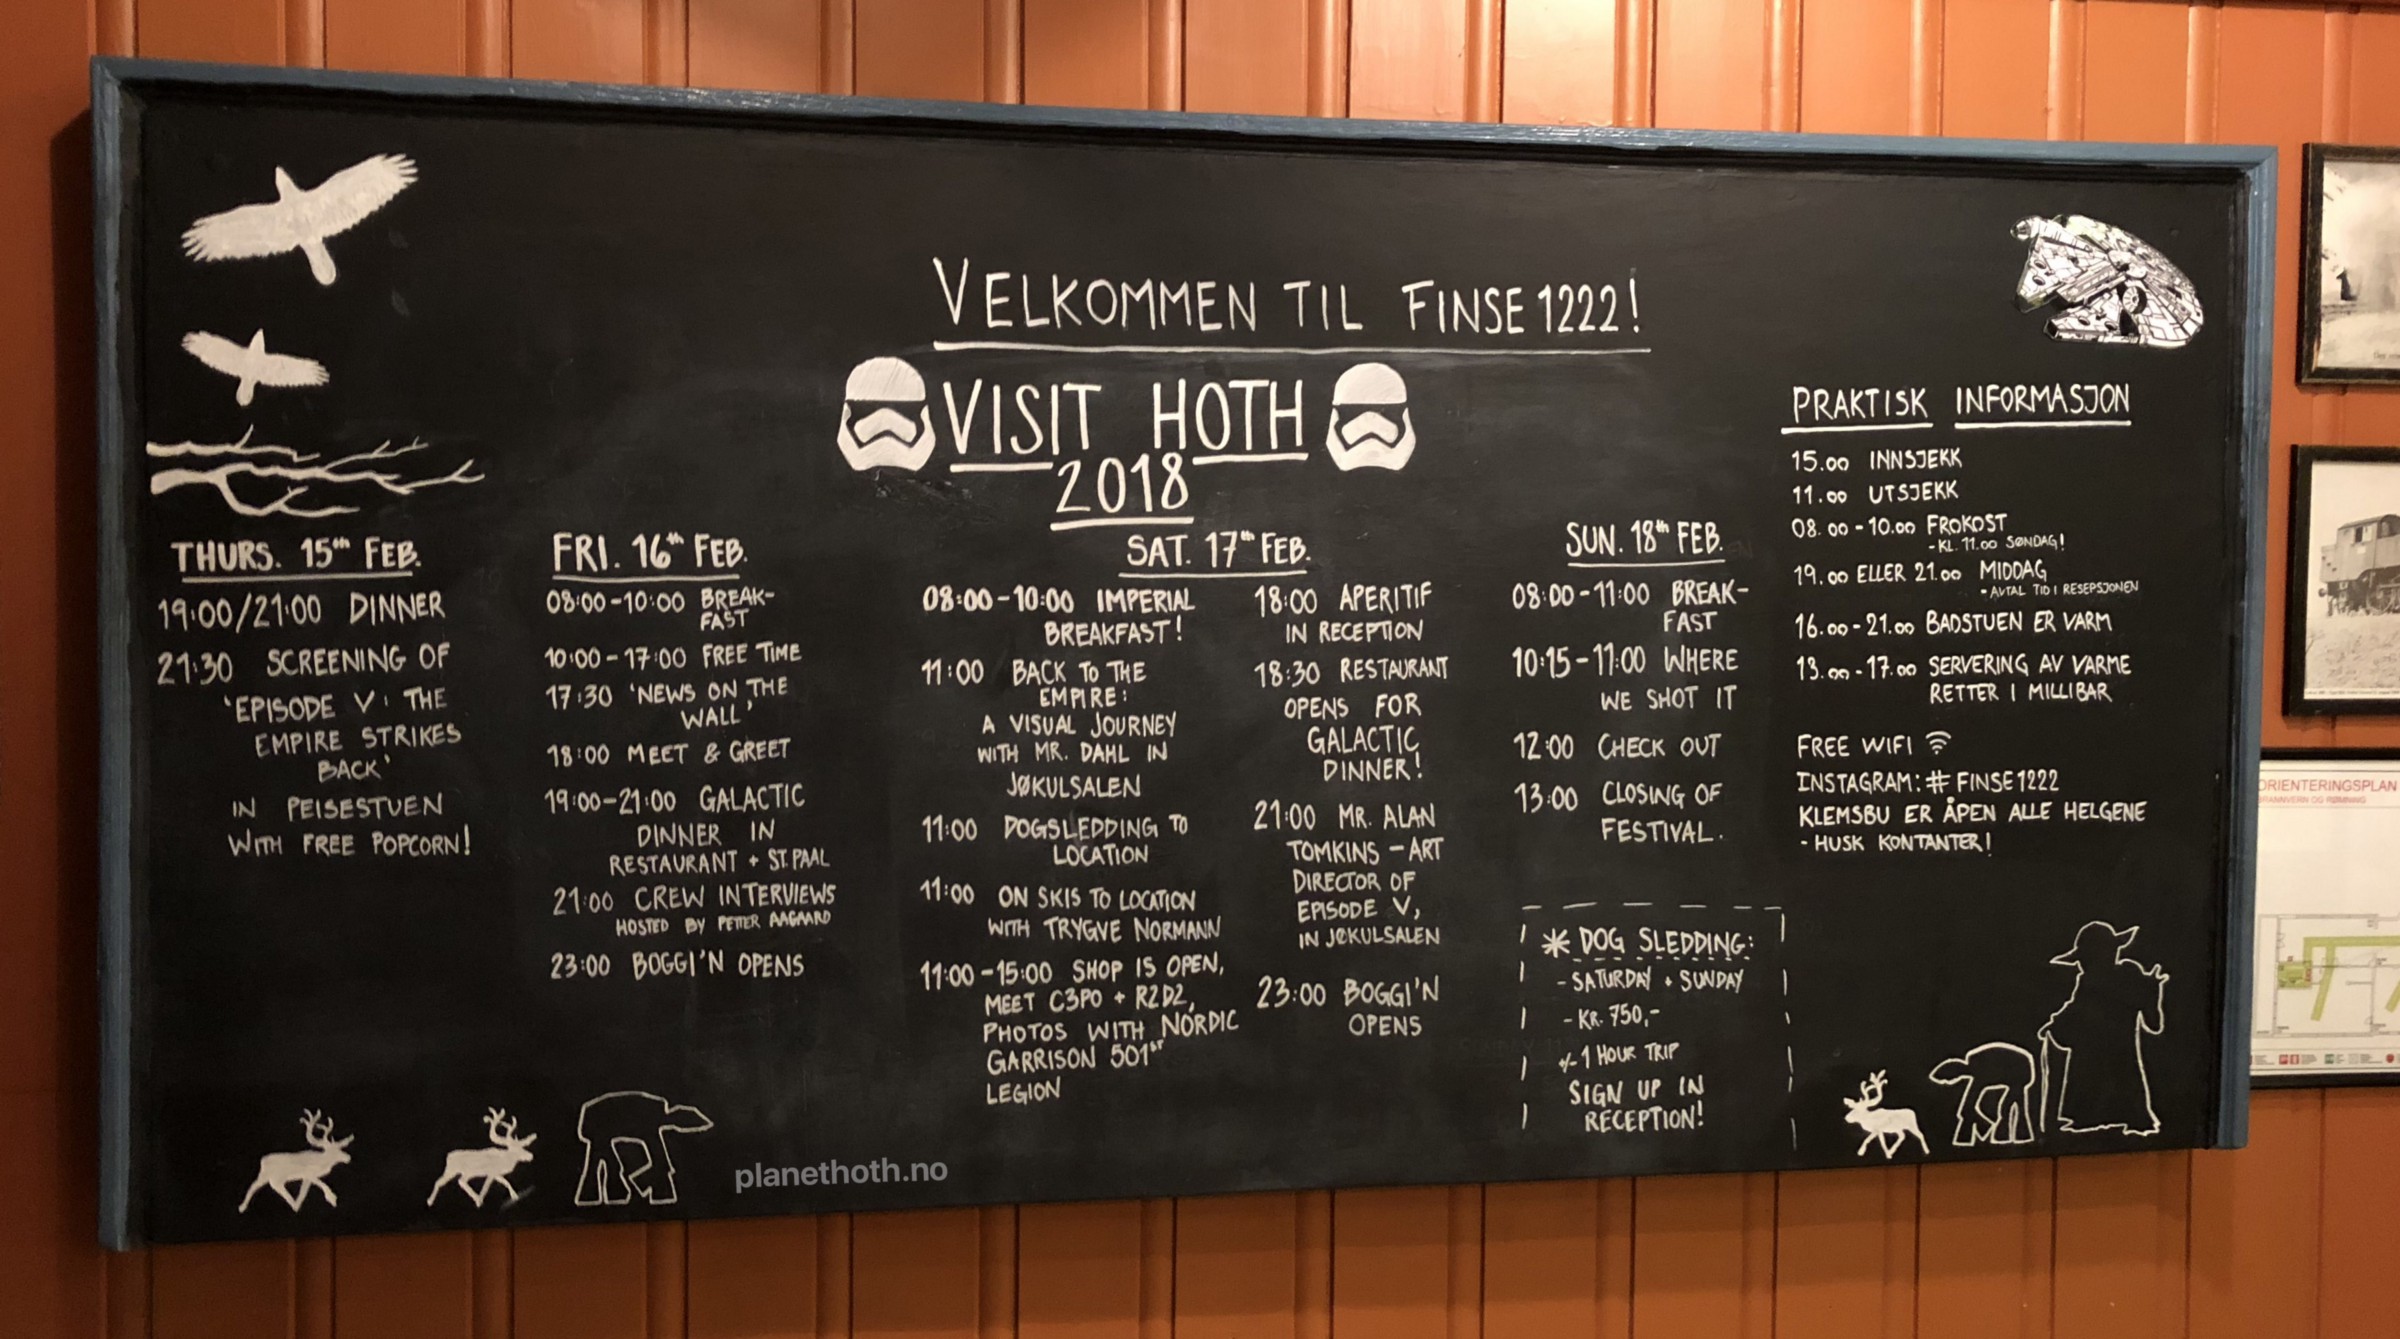 VELKOMMEN TIL FINSE 1222!
VISIT HOTH
2018
THURS. 15TH FEB.
19:00/21:00 DINNER
21:30 SCREENING OF
'EPISODE V: THE
EMPIRE STRIKES
BACK'
IN PEISESTUEN
WITH FREE POPCORN!
FRI. 16TH FEB.
08:00-10:00 BREAK-
FAST
10:00-17:00 FREE TIME
17:30 'NEWS ON THE
WALL'
18:00 MEET & GREET
19:00-21:00 GALACTIC
DINNER IN
RESTAURANT + ST. PAAL
21:00 CREW INTERVIEWS
HOSTED BY PETTER AAGAARD
23:00 BOGGI'N OPENS
SAT. 17TH FEB.
08:00-10:00 IMPERIAL
BREAKFAST!
11:00 BACK TO THE
EMPIRE:
A VISUAL JOURNEY
WITH MR. DAHL IN
JØKULSALEN
11:00 DOGSLEDDING TO
LOCATION
11:00 ON SKIS TO LOCATION
WITH TRYGVE NORMANN
11:00-15:00 SHOP IS OPEN,
MEET C3PO + R2D2,
PHOTOS WITH NORDIC
GARRISON 501ST
LEGION
18:00 APERITIF
IN RECEPTION
18:30 RESTAURANT
OPENS FOR
GALACTIC
DINNER!
21:00 MR. ALAN
TOMKINS - ART
DIRECTOR OF
EPISODE V,
IN JØKULSALEN
23:00 BOGGI'N
OPENS
SUN. 18TH FEB.
08:00-11:00 BREAK-
FAST
10:15-11:00 WHERE
WE SHOT IT
12:00 CHECK OUT
13:00 CLOSING OF
FESTIVAL.
* DOG SLEDDING:
- SATURDAY + SUNDAY
- KR. 750,-
+/- 1 HOUR TRIP
SIGN UP IN
RECEPTION!
PRAKTISK INFORMASJON
15.00 INNSJEKK
11.00 UTSJEKK
08.00-10.00 FROKOST
- KL. 11.00 SØNDAG!
19.00 ELLER 21.00 MIDDAG
- AVTAL TID I RESEPSJONEN
16.00-21.00 BADSTUEN ER VARM
13.00-17.00 SERVERING AV VARME
RETTER I MILLIBAR
FREE WIFI
INSTAGRAM: # FINSE1222
KLEMSBU ER ÅPEN ALLE HELGENE
- HUSK KONTANTER!
planethoth.no
ORIENTERINGSPLAN